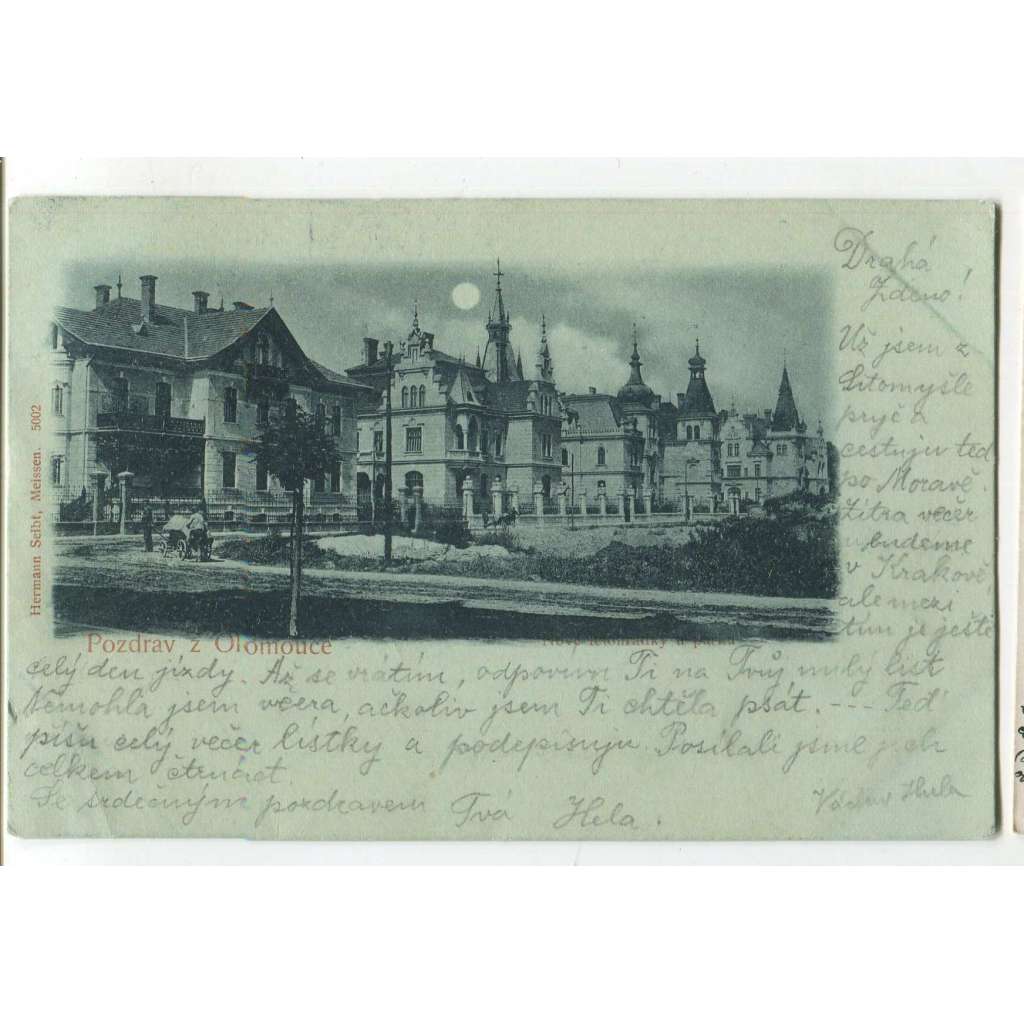 Hermann Seibt, Meissen. 5002
Pozdrav z Olomouce
Drahá
Zdeno!
Už jsem z
Litomyšle
pryč a
cestuju teď
po Moravě.
Zítra večer
budeme
v Krakově,
ale mezi
tím je ještě
celý den jízdy. Až se vrátím, odpovím Ti na Tvůj milý list
Nemohla jsem včera, ačkoliv jsem Ti chtěla psát. --- Teď
píšu celý večer lístky a podepisuju. Posílali jsme jich
celkem čtrnáct.
Se srdečným pozdravem Tvá Hela.
Václav